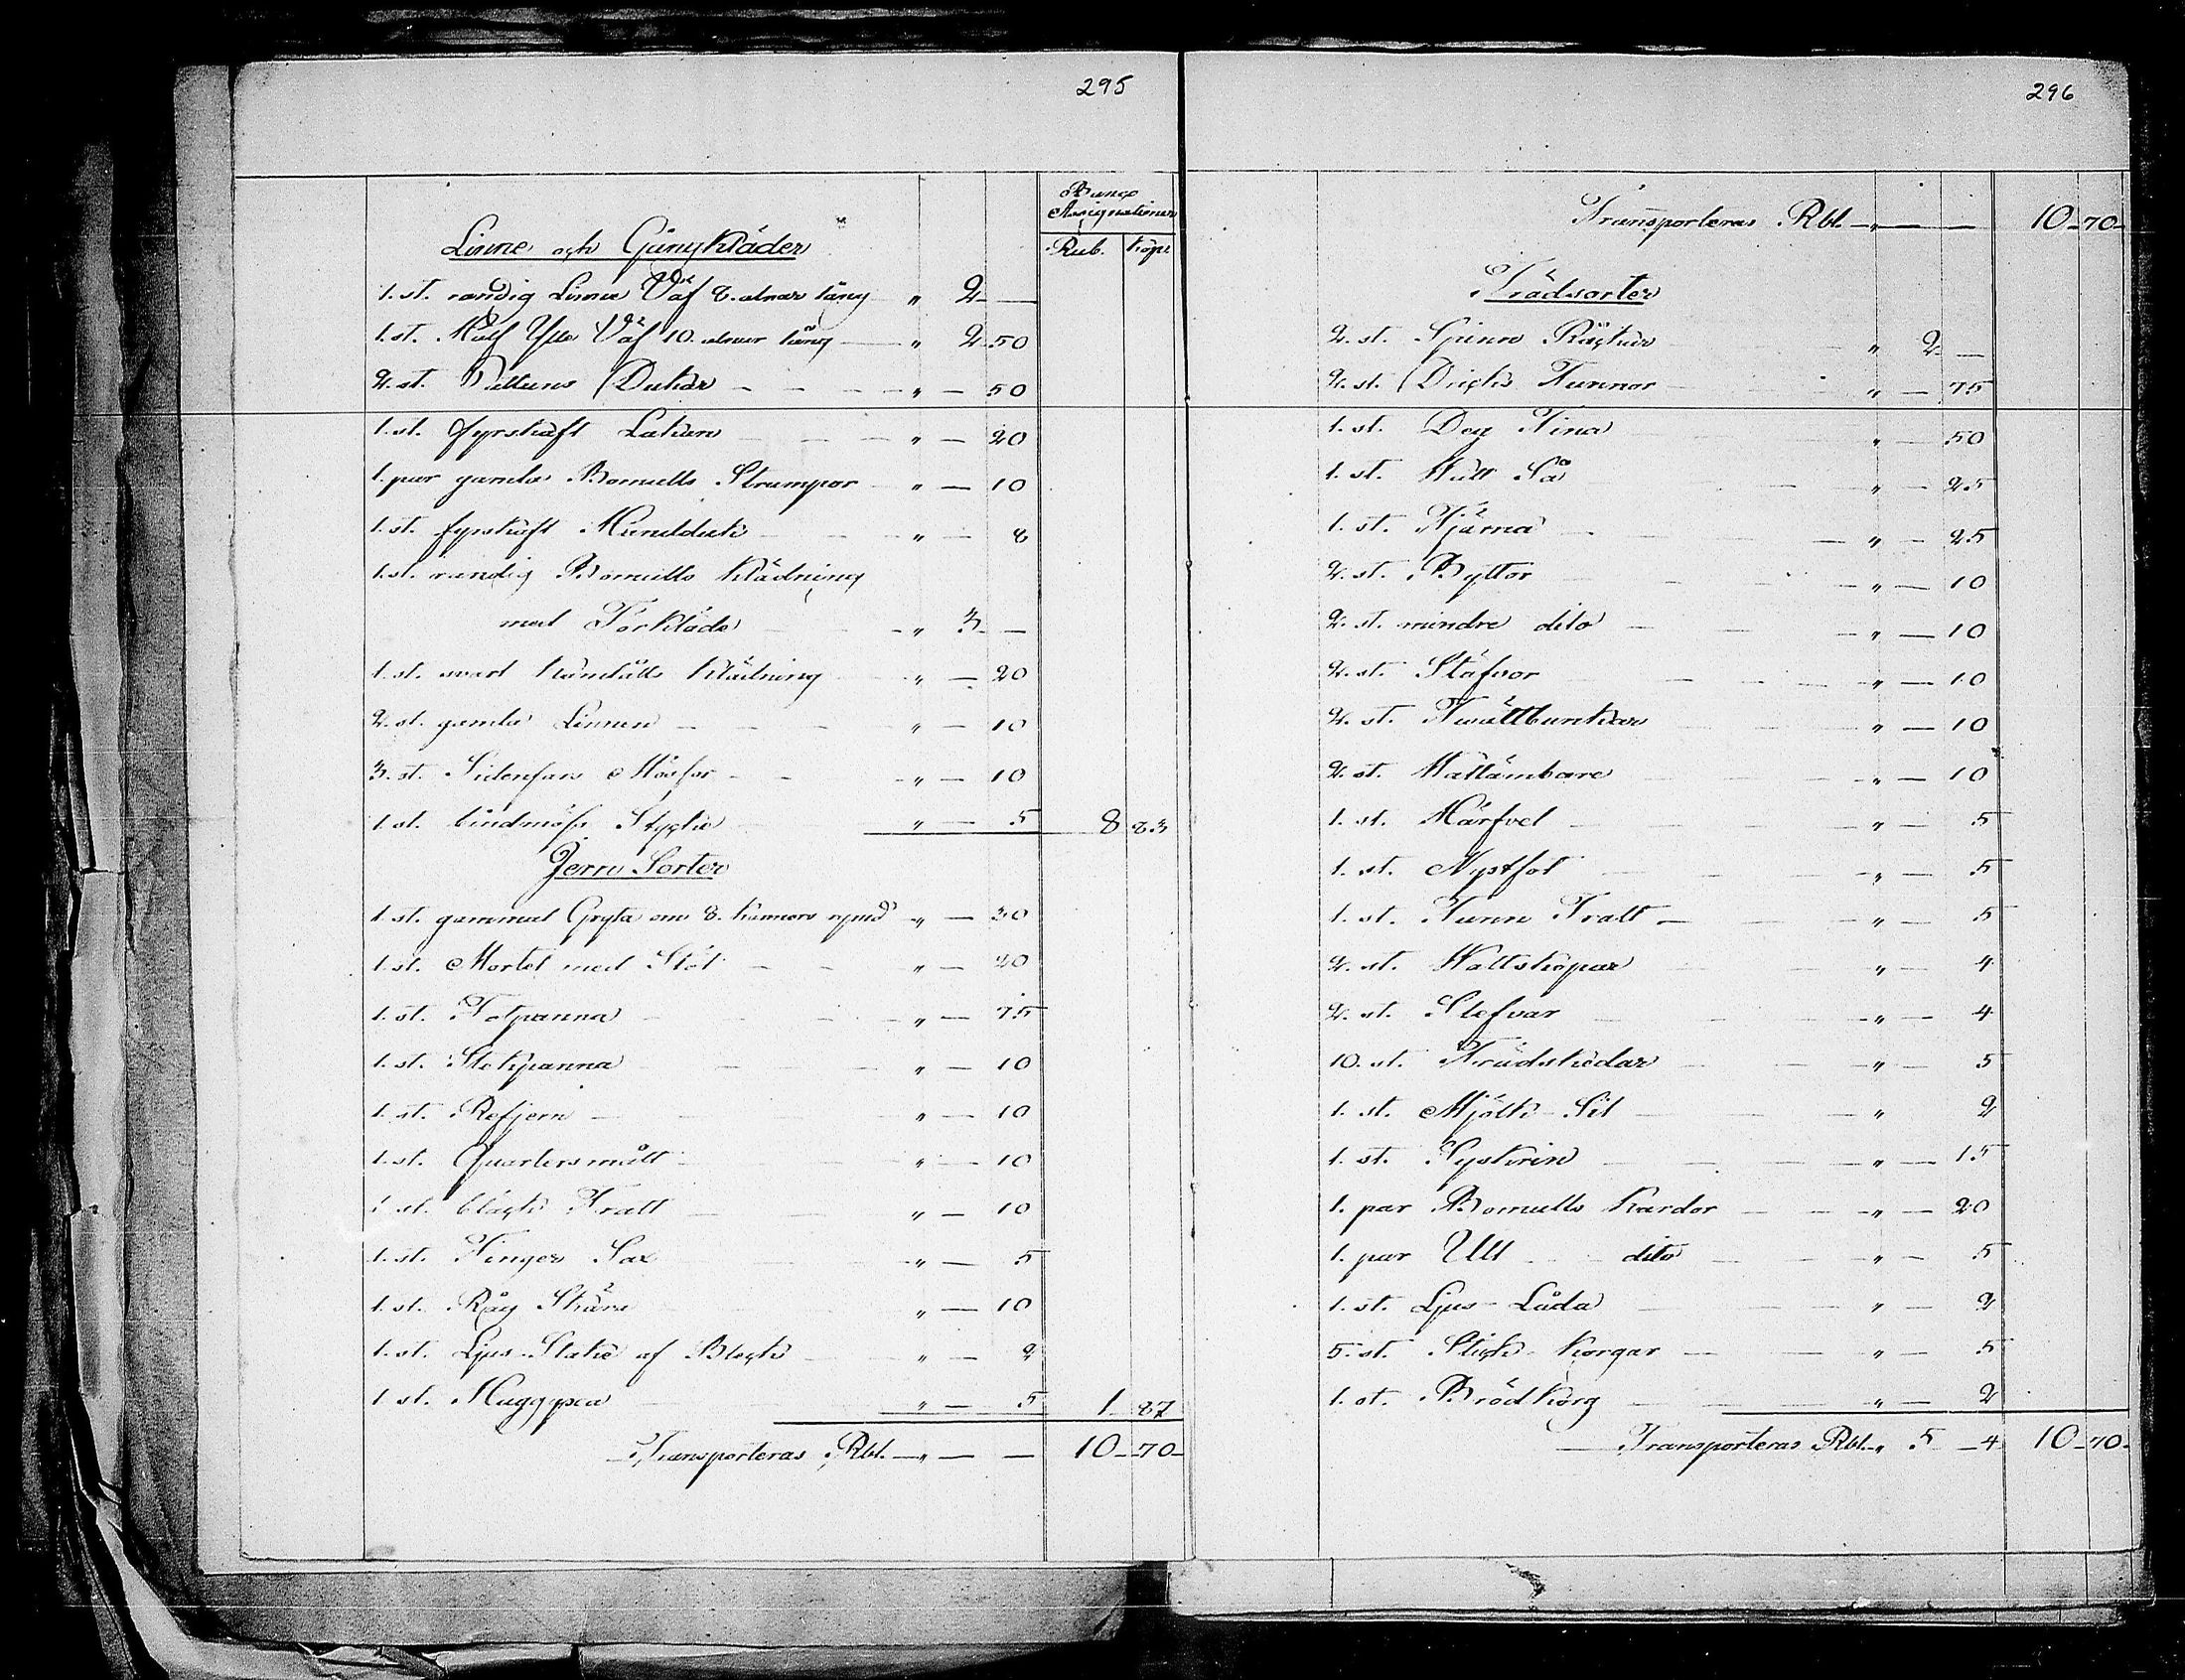 295
Banco
Assignationer
Rub. Kop:
Linne och Gångkläder
1. st. randig Linne Väf 8. alnar lång " 2 —
1. st. Half Ylle Väf 10. alnar lång — " 2 50
2. st. Dukar — " — 50
1. st. fyrskaft Lakan — " — 20
1. par gamla Bomulls Strumpor " — 10
1. st. fyrskaft Handduk — " — 8
1. st. randig Bomulls Klädning
med Förkläde — " 3 —
1. st. svart Klädning " — 20
2. st. gamla Linnen — " — 10
3. st. Mössor — " — 10
1. st. bindmöss Stycke " — 5 8 83
Jern Sorter
1. st. gammal Gryta om 8. kannors rymd " — 30
1. st. Mortel med Stöt — " — 20
1. st. Fotpanna — " — 75
1. st. Stekpanna — " — 10
1. st. Refjern — " — 10
1. st. Quartersmått — " — 10
1 st. bläck Tratt — " — 10
1. st. Finger Sax — " — 5
1. st. Råg Skära — " — 10
1. st. Ljus-Stake af Bleck — " — 2
1 st. — " — 5 1 87
Transporteras Rbl. — " — — 10 — 70 —
296
Transporteras Rbl. — " — — 10 — 70 —
Trädsorter
2. st. Spinn Råckar " 2 —
2. st. Dricks Tunnor " — 75
1. st. Deg Tina " — 50
1. st. Så — " — 25
1. st. Kjärna — " — 25
2. st. Byttor — " — 10
2. st. mindre dito — " — 10
2. st. Stäfvor — " — 10
2. st. Twättbunkar " — 10
2. st. Wattämbare — " — 10
1. st. Härfvel — " — 5
1. st. Nystfot — " — 5
1. st. Tunn Tratt — " — 5
2. st. Wattskopar — " — 4
2. st. Slefvar — " — 4
10. st. Trädskedar — " — 5
1. st. Mjölk-Sil — " 2
1. st. — " — 15
1. par Bomulls Kardor — " — 20
1. par Ull dito — " — 5
1. st. Ljus-Låda — " — 2
5. st. Stick-korgar — " — 5
1. st. Brödkorg — " — 2
Transporteras Rbl. " 5 — 4 10 — 70 —